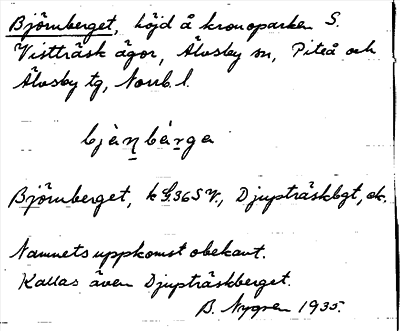 Björnberget, höjd å kronoparken S.
Vistträsk ägor, Älvsby sn, Piteå och
Älvsby tg, Norrb. l.
bjèn bærge
Björnberget, k G.36 S V., Djupträskbgt, ek.
Namnets uppkomst obekant.
Kallas även Djupträskberget.
B. Nygren 1935.